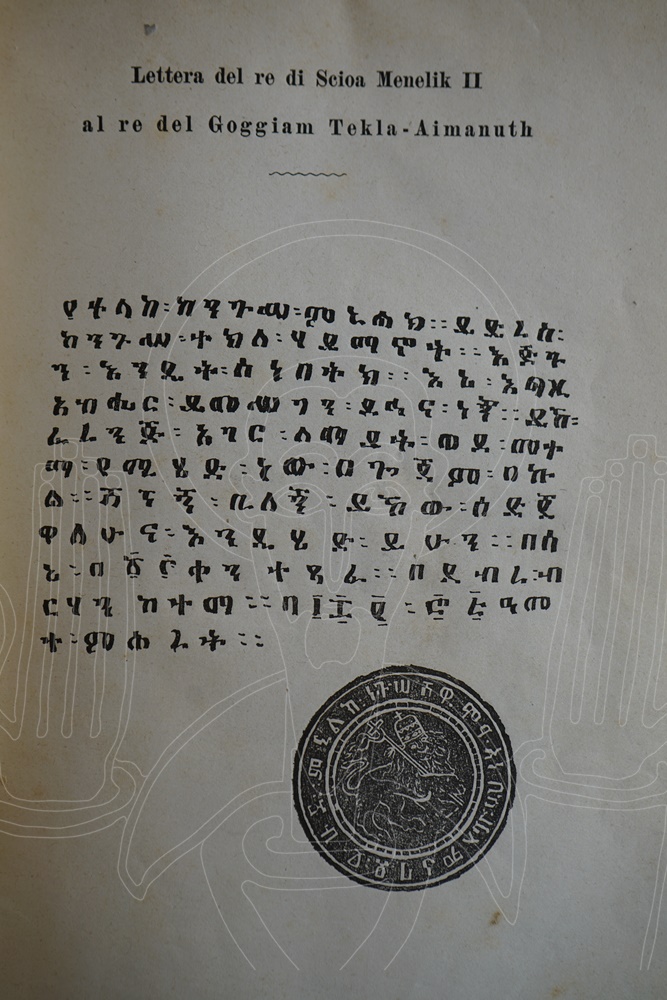 Lettera del re di Scioa Menelik II
al re del Goggiam Tekla-Aimanuth
የተላከ፡ከንጉሠ፡ምኒልክ፡፡ይድረስ፡
ከንጉሠ፡ተክለ፡ሃይማኖት፡፡እጅጉ
ን፡እንዴት፡ሰነበትክ፡፡እኔ፡እግዚ
አብሔር፡ይመሠገን፡ደኅና፡ነኝ፡፡ይኸ፡
ፈረንጅ፡አገር፡ለማየት፡ወደ፡መተ
ማ፡የሚሄድ፡ነው፡በጐጃም፡በኩ
ል፡፡ሻኘኝ፡ቢለኝ፡ይኸው፡ሰድጄ
ዋለሁና፡እንዲሄድ፡ይሁን፡፡በሰ
ኔ፡በ ቀን ተጻፈ፡፡በደብረ፡ብ
ርሃን ከተማ፡፡ ዓመ
ተ፡ምሕረት፡፡